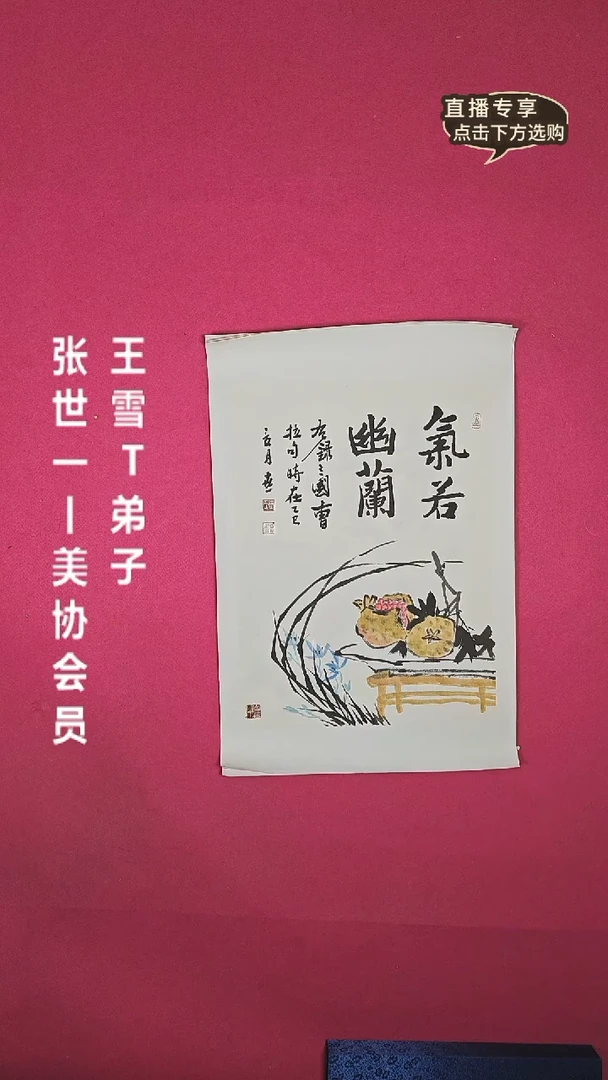 直播专享
点击下方选购
王雪T弟子
张世一丨美协会员
氣若
幽蘭
右錄三國曹
植句時在乙巳
月